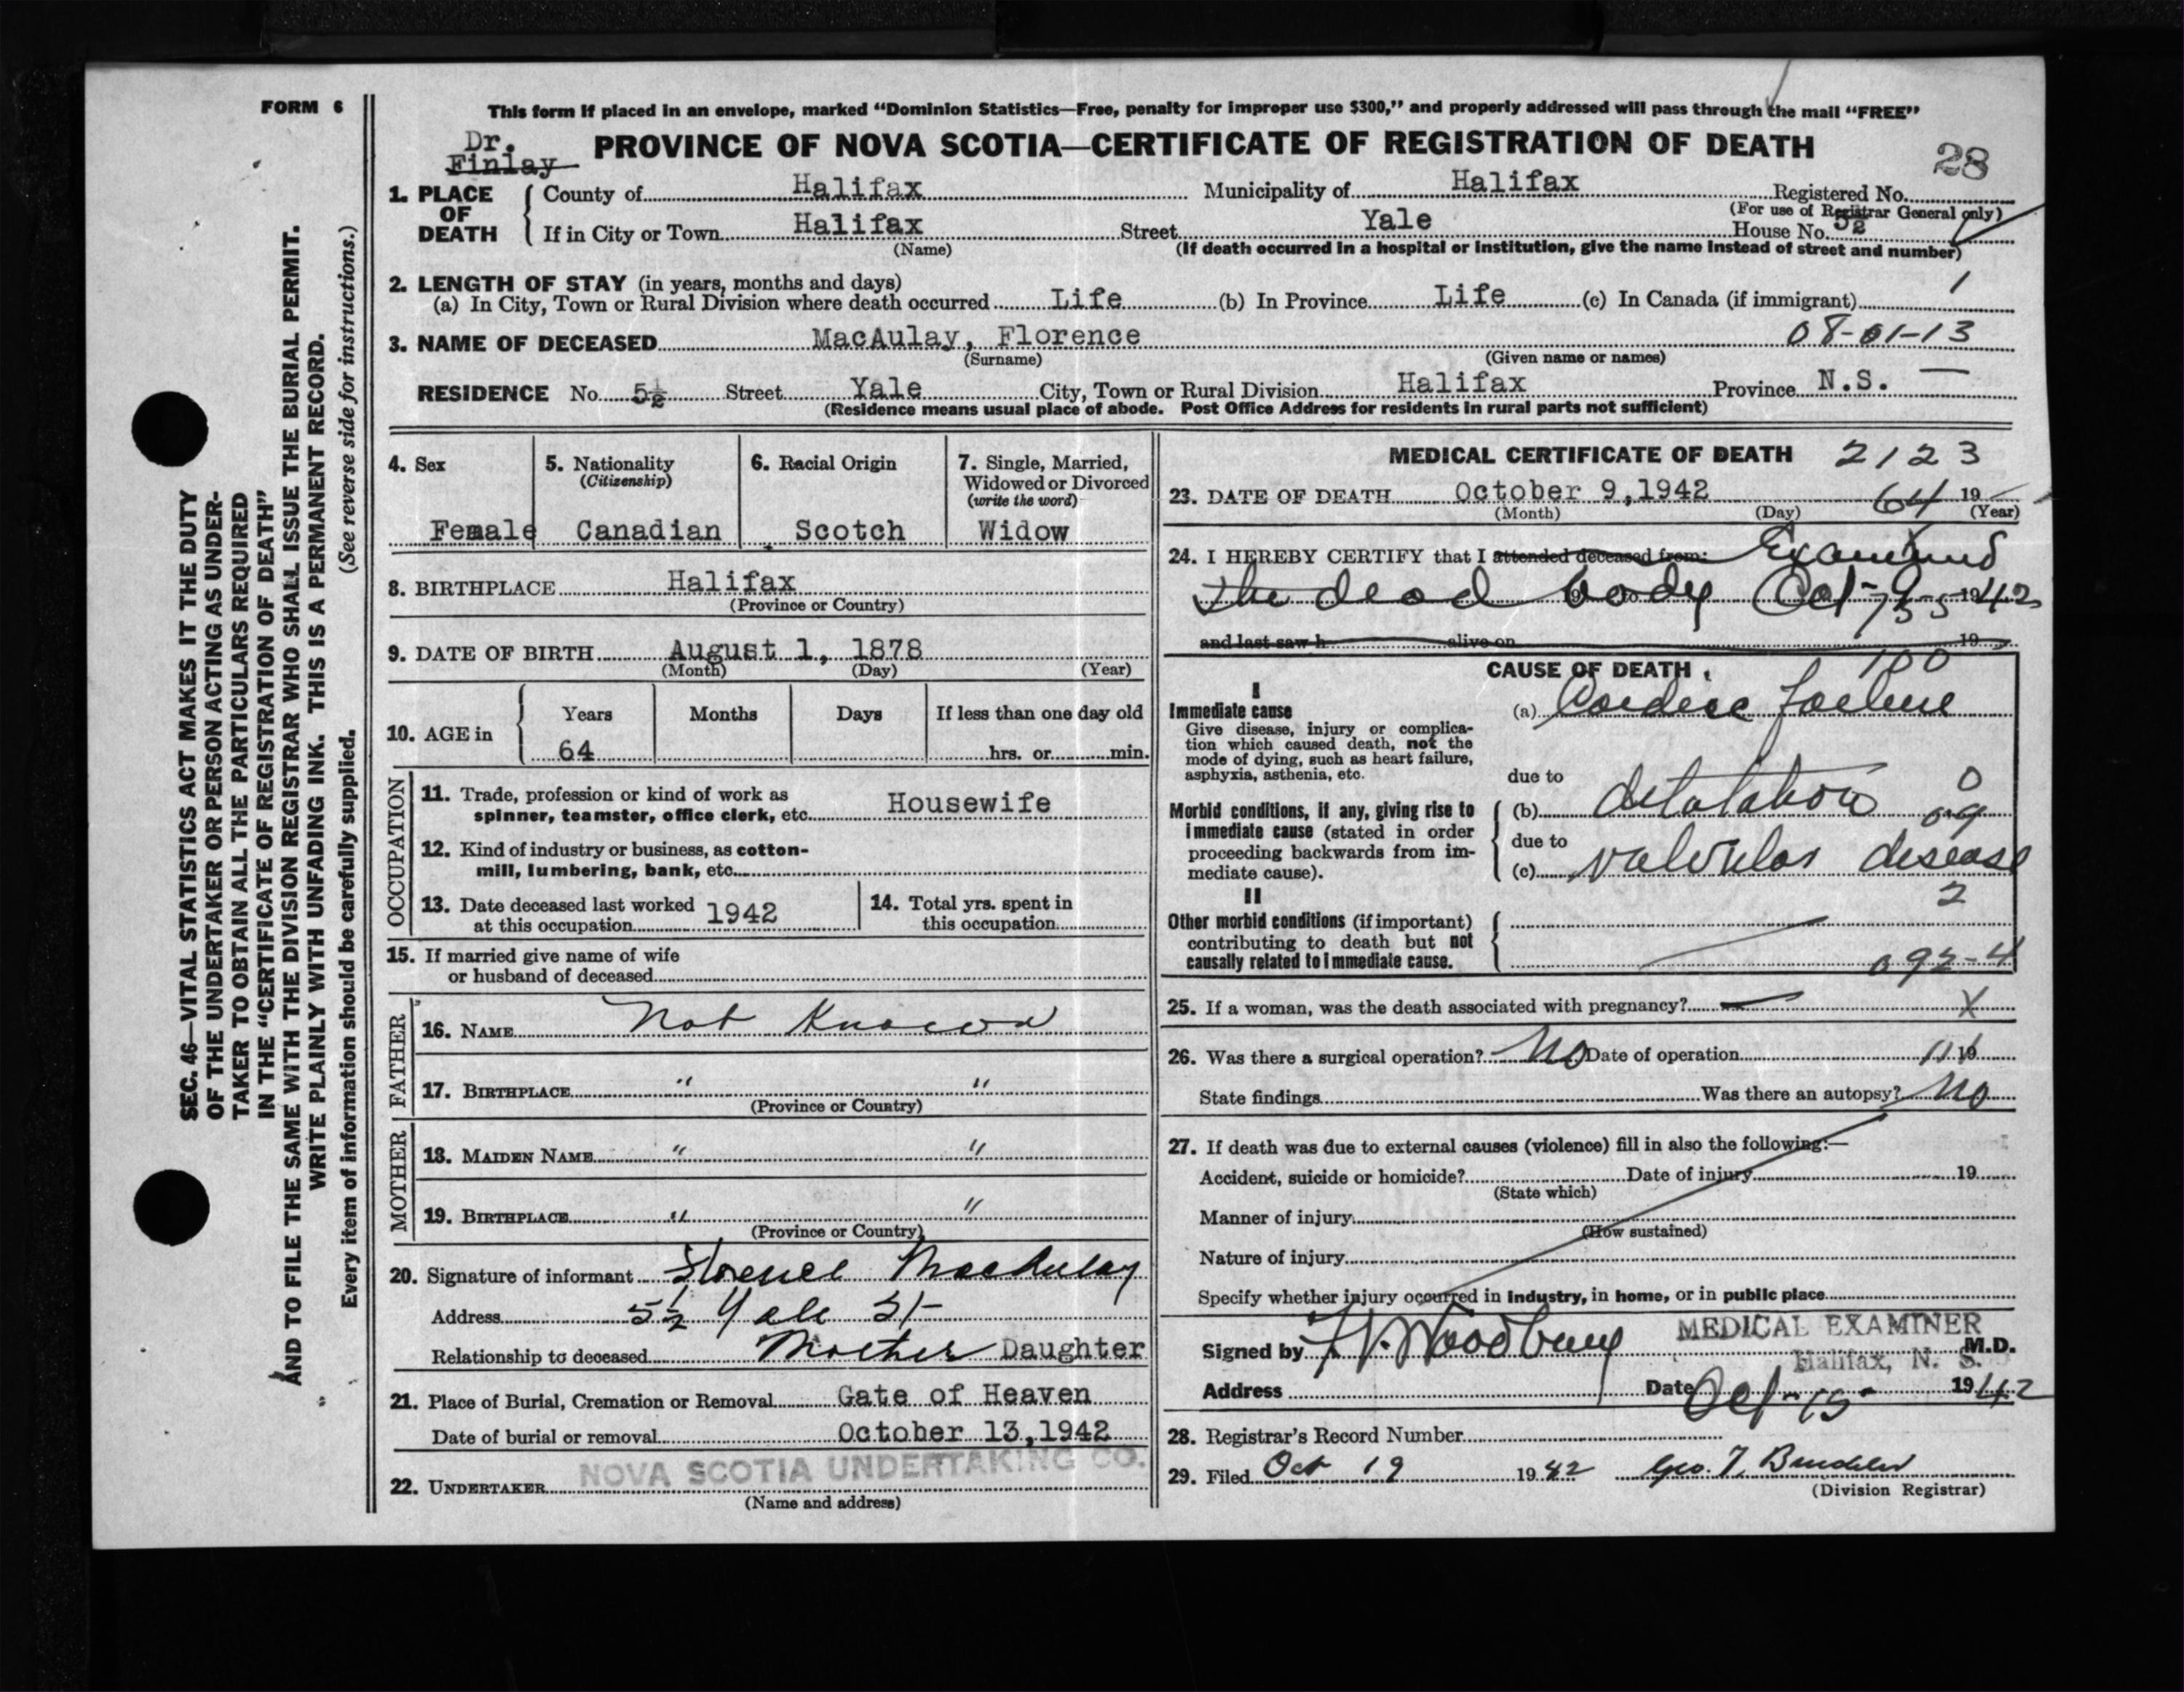 FORM 6
This form if placed in an envelope, marked “Dominion Statistics—Free, penalty for improper use $300,” and properly addressed will pass through the mail “FREE”
Dr.
Finlay
PROVINCE OF NOVA SCOTIA—CERTIFICATE OF REGISTRATION OF DEATH
28
1. PLACE OF DEATH
County of Halifax Municipality of Halifax Registered No.
(For use of Registrar General only)
If in City or Town Halifax Street Yale House No. 5½
(Name) (If death occurred in a hospital or institution, give the name instead of street and number)
2. LENGTH OF STAY (in years, months and days)
(a) In City, Town or Rural Division where death occurred Life (b) In Province Life (c) In Canada (if immigrant) 1
3. NAME OF DECEASED MacAulay, Florence 08-01-13
(Surname) (Given name or names)
RESIDENCE No. 5½ Street Yale City, Town or Rural Division Halifax Province N.S. —
(Residence means usual place of abode. Post Office Address for residents in rural parts not sufficient)
4. Sex
Female
5. Nationality
(Citizenship)
Canadian
6. Racial Origin
Scotch
7. Single, Married,
Widowed or Divorced
(write the word)
Widow
8. BIRTHPLACE Halifax
(Province or Country)
9. DATE OF BIRTH August 1, 1878
(Month) (Day) (Year)
10. AGE in
Years Months Days If less than one day old
64 hrs. or min.
OCCUPATION
11. Trade, profession or kind of work as
spinner, teamster, office clerk, etc. Housewife
12. Kind of industry or business, as cotton-
mill, lumbering, bank, etc.
13. Date deceased last worked
at this occupation 1942
14. Total yrs. spent in
this occupation
15. If married give name of wife
or husband of deceased
FATHER
16. NAME Not Known
17. BIRTHPLACE " "
(Province or Country)
MOTHER
18. MAIDEN NAME " "
19. BIRTHPLACE " "
(Province or Country)
20. Signature of informant Florence MacAulay
Address 5½ Yale St
Relationship to deceased Mother Daughter
21. Place of Burial, Cremation or Removal Gate of Heaven
Date of burial or removal October 13, 1942
22. UNDERTAKER NOVA SCOTIA UNDERTAKING CO.
(Name and address)
MEDICAL CERTIFICATE OF DEATH 2123
23. DATE OF DEATH October 9, 1942 64 19
(Month) (Day) (Year)
24. I HEREBY CERTIFY that I attended deceased from: Examined
the dead body Oct-9 1942
and last saw h alive on 19
CAUSE OF DEATH
100
I
Immediate cause
Give disease, injury or complica-
tion which caused death, not the
mode of dying, such as heart failure,
asphyxia, asthenia, etc.
(a) Cardiac failure
due to
Morbid conditions, if any, giving rise to
immediate cause (stated in order
proceeding backwards from im-
mediate cause).
(b) dilatation
due to
(c) valvular disease
2
II
Other morbid conditions (if important)
contributing to death but not
causally related to immediate cause.
092-4
25. If a woman, was the death associated with pregnancy? — X
26. Was there a surgical operation? No Date of operation 19
State findings Was there an autopsy? No
27. If death was due to external causes (violence) fill in also the following:—
Accident, suicide or homicide? Date of injury 19
(State which)
Manner of injury
(How sustained)
Nature of injury
Specify whether injury occurred in industry, in home, or in public place
MEDICAL EXAMINER
Signed by Woodbury M.D.
Halifax, N. S.
Address Date Oct-15 1942
28. Registrar's Record Number
29. Filed Oct 19 1942 Geo. T.
(Division Registrar)
SEC. 46—VITAL STATISTICS ACT MAKES IT THE DUTY
OF THE UNDERTAKER OR PERSON ACTING AS UNDER-
TAKER TO OBTAIN ALL THE PARTICULARS REQUIRED
IN THE “CERTIFICATE OF REGISTRATION OF DEATH”
AND TO FILE THE SAME WITH THE DIVISION REGISTRAR WHO SHALL ISSUE THE BURIAL PERMIT.
WRITE PLAINLY WITH UNFADING INK. THIS IS A PERMANENT RECORD.
Every item of information should be carefully supplied. (See reverse side for instructions.)